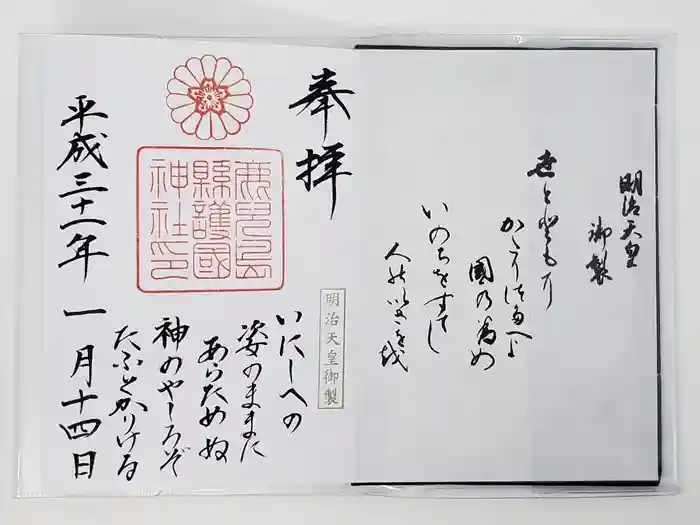 明治天皇
御製
國乃為め
いのちをすてし
奉拝
明治天皇御製
いにしへの
姿のままに
あらためぬ
神のやしろぞ
たふとかりける
鹿兒島
縣護國
神社印
平成三十一年一月十四日